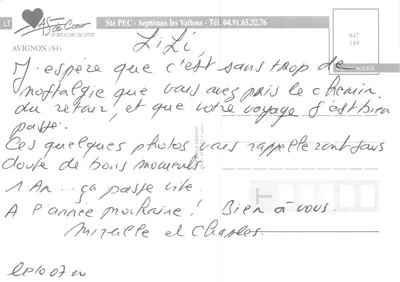 LT
As de Cœur
Sté PEC - Septèmes les Vallons - Tél. 04.91.65.32.76
AVIGNON (84)
847
149
LiLi,
J'espère que c'est sans trop de
nostalgie que vous avez pris le chemin
du retour, et que votre voyage s'est bien
passé.
Ces quelques photos vous rappelleront sans
doute de bons moments.
1 An... ça passe vite.
A l'année prochaine ! Bien à vous.
Mireille et Charles.
le 10 07